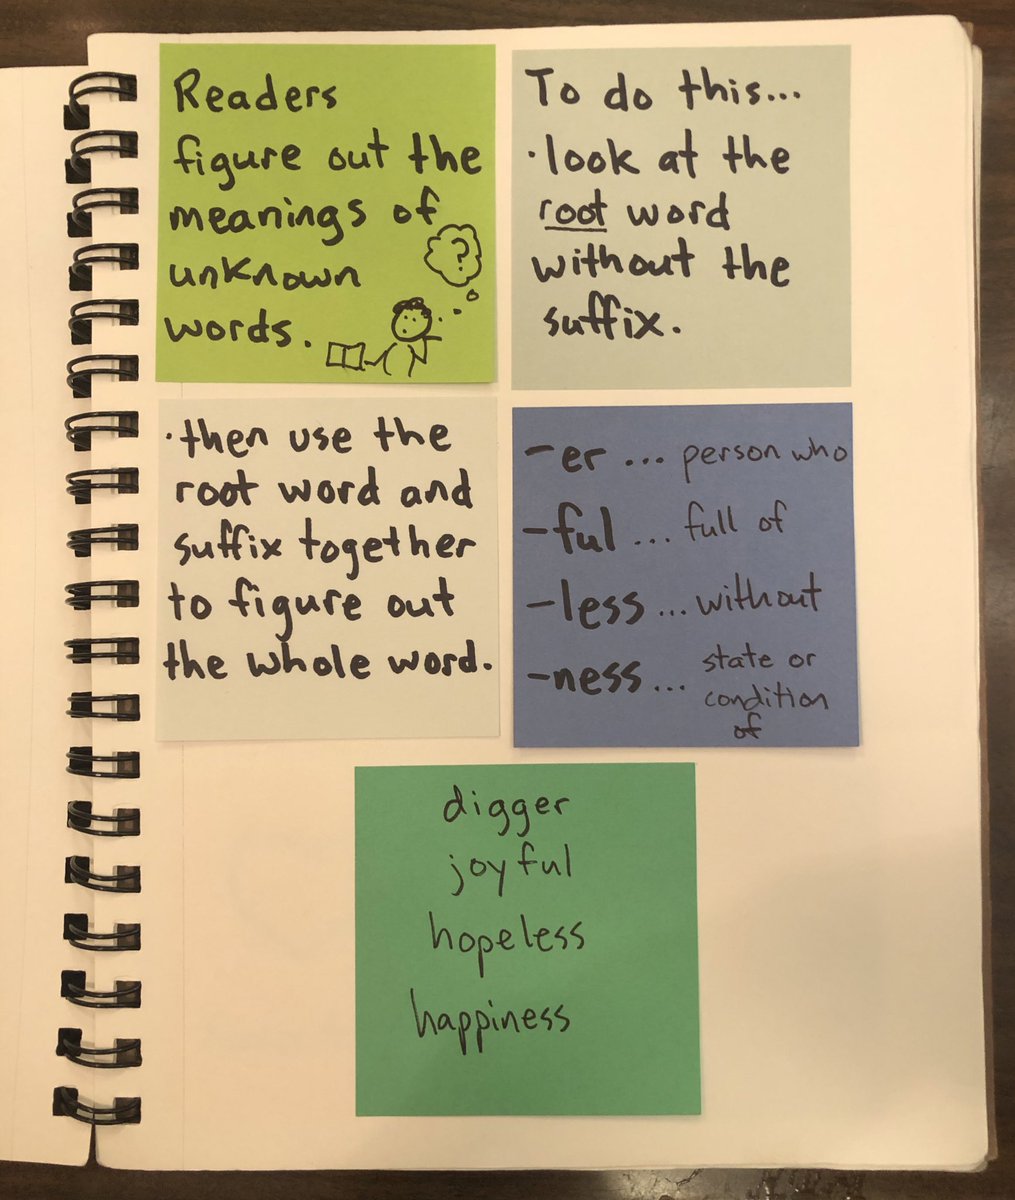 Readers
figure out the
meanings of
unknown
words.
?
To do this...
·look at the
root word
without the
suffix.
·then use the
root word and
suffix together
to figure out
the whole word.
-er ... person who
-ful ... full of
-less ... without
-ness ... state or
condition
of
digger
joyful
hopeless
happiness